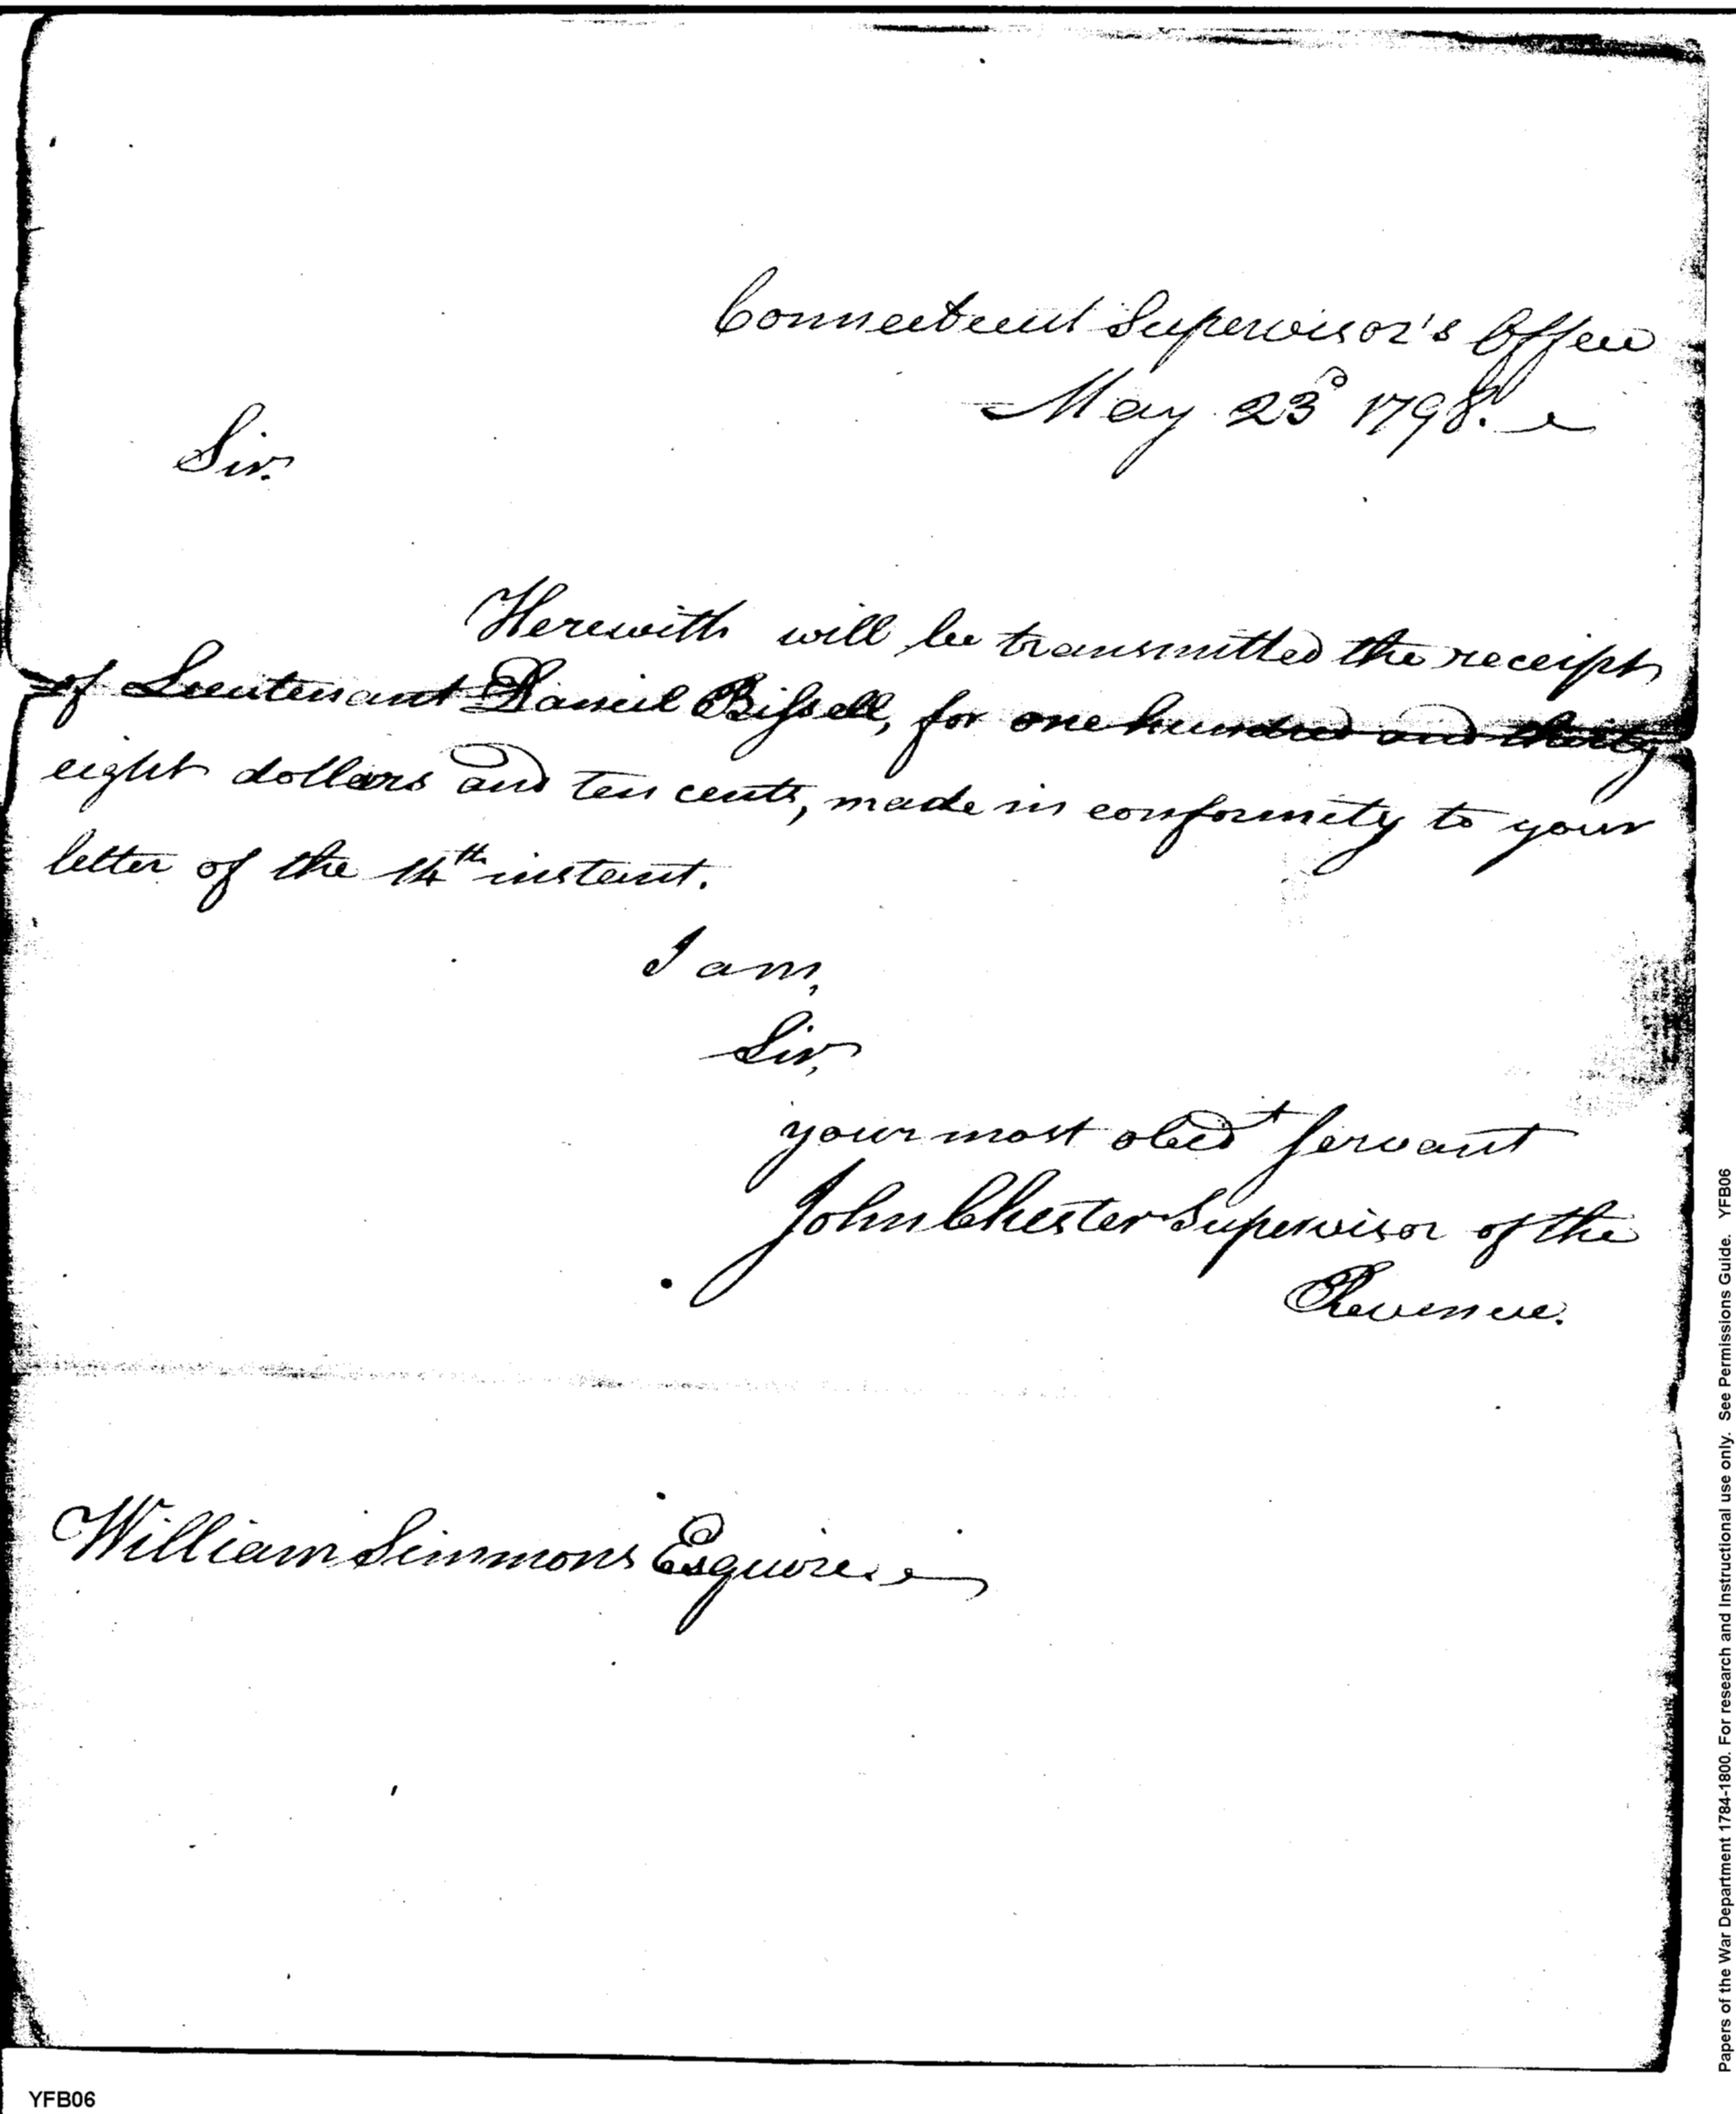 Connecticut Supervisor's Office
May 23d 1798.
Sir.
Herewith will be transmitted the receipt
of Lieutenant Daniel Bissell, for one hundred and thirty
eight dollars and ten cents, made in conformity to your
letter of the 14th instant.
I am,
Sir,
your most obedt servant
John Chester Supervisor of the
Revenue.
William Simmons Esquire.
YFB06
Papers of the War Department 1784-1800. For research and Instructional use only. See Permissions Guide. YFB06